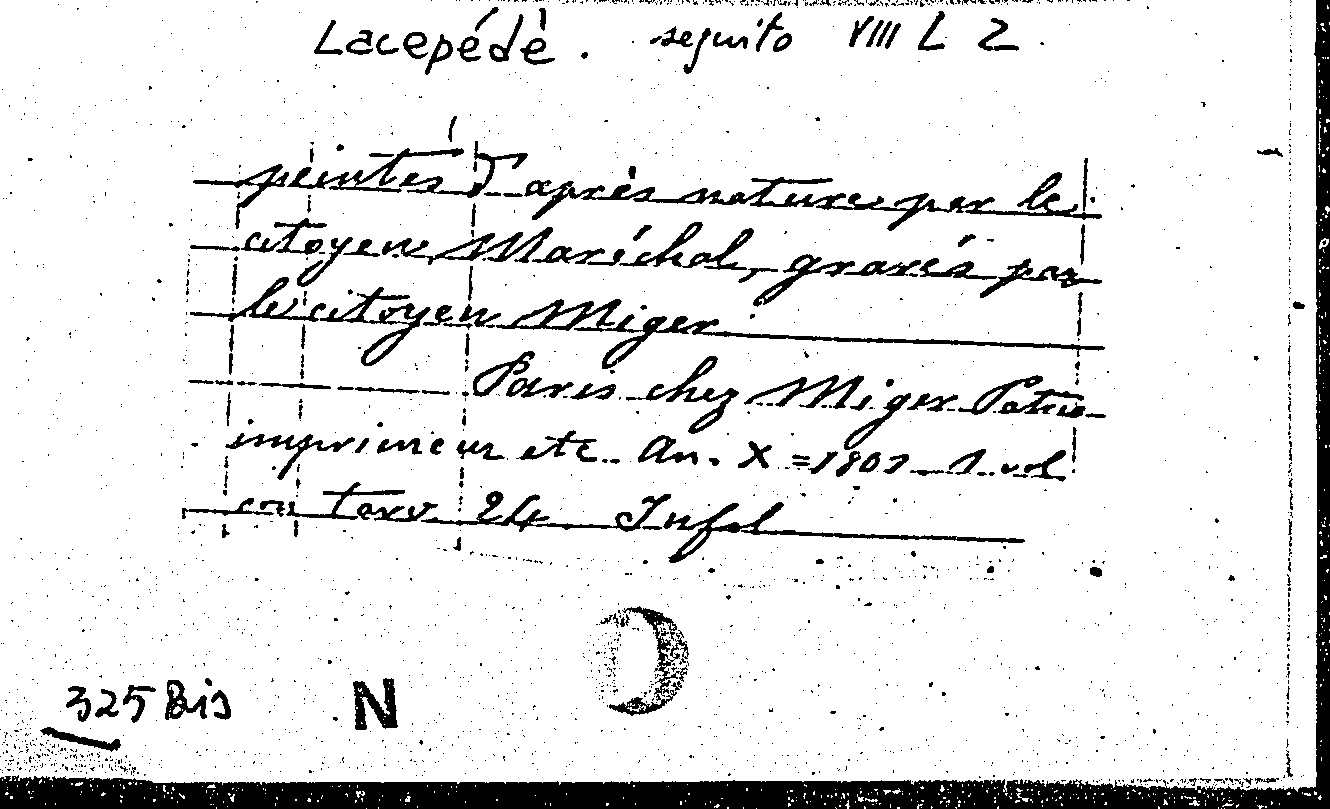 Lacepédè. seguito VIII L 2.
peintés d'après nature par le
citoyen Maréchal, gravés par
le citoyen Miger
Paris chez Miger
imprimeur etc. An. X = 1801 1 vol
con tav. 24 Infol
325 Bis N